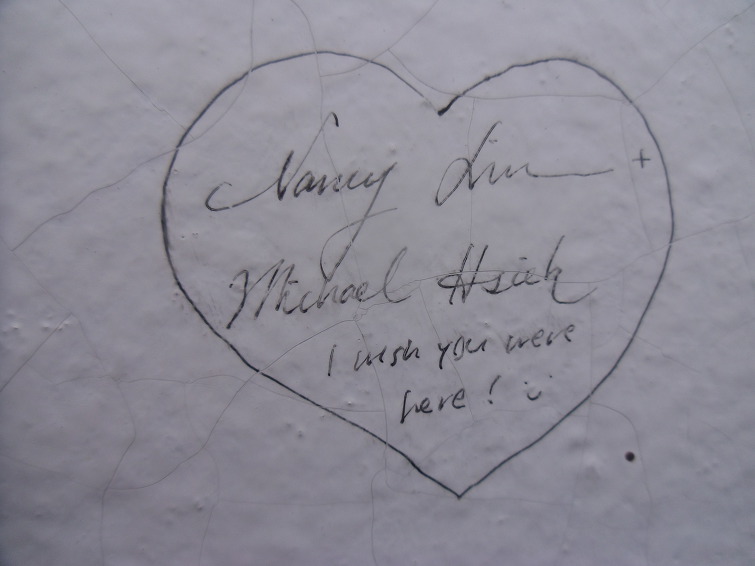 Nancy Lin +
Michael Hsieh
I wish you were
here! :)